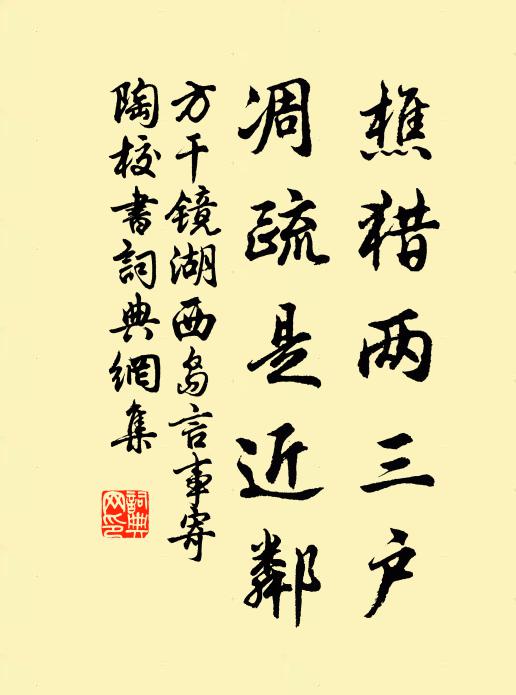 樵猎两三户
凋疏是近鄰
方干镜湖西岛言事寄
陶校書詞典網集
詞典网印